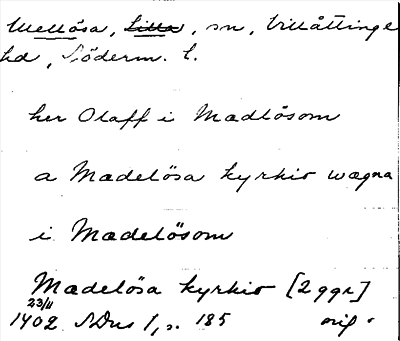 Mellösa, Lilla, sn, Villåttinge
hd, Söderm. l.
her Olaff i Madlösom
a Madelösa kyrkio wægna
i Madelösom
Madelösa kyrkio [2 ggr]
23/11
1402 SDns 1, s. 185 orig.